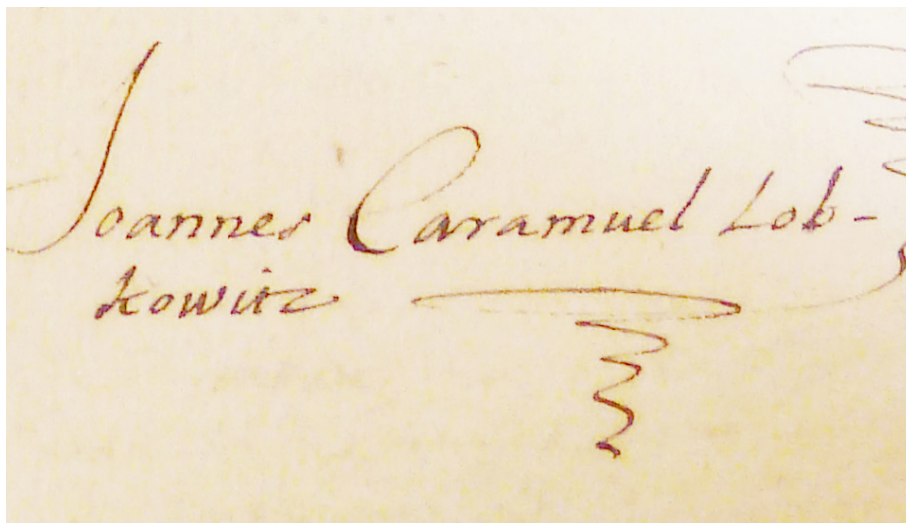 Joannes Caramuel Lob-
kowitz